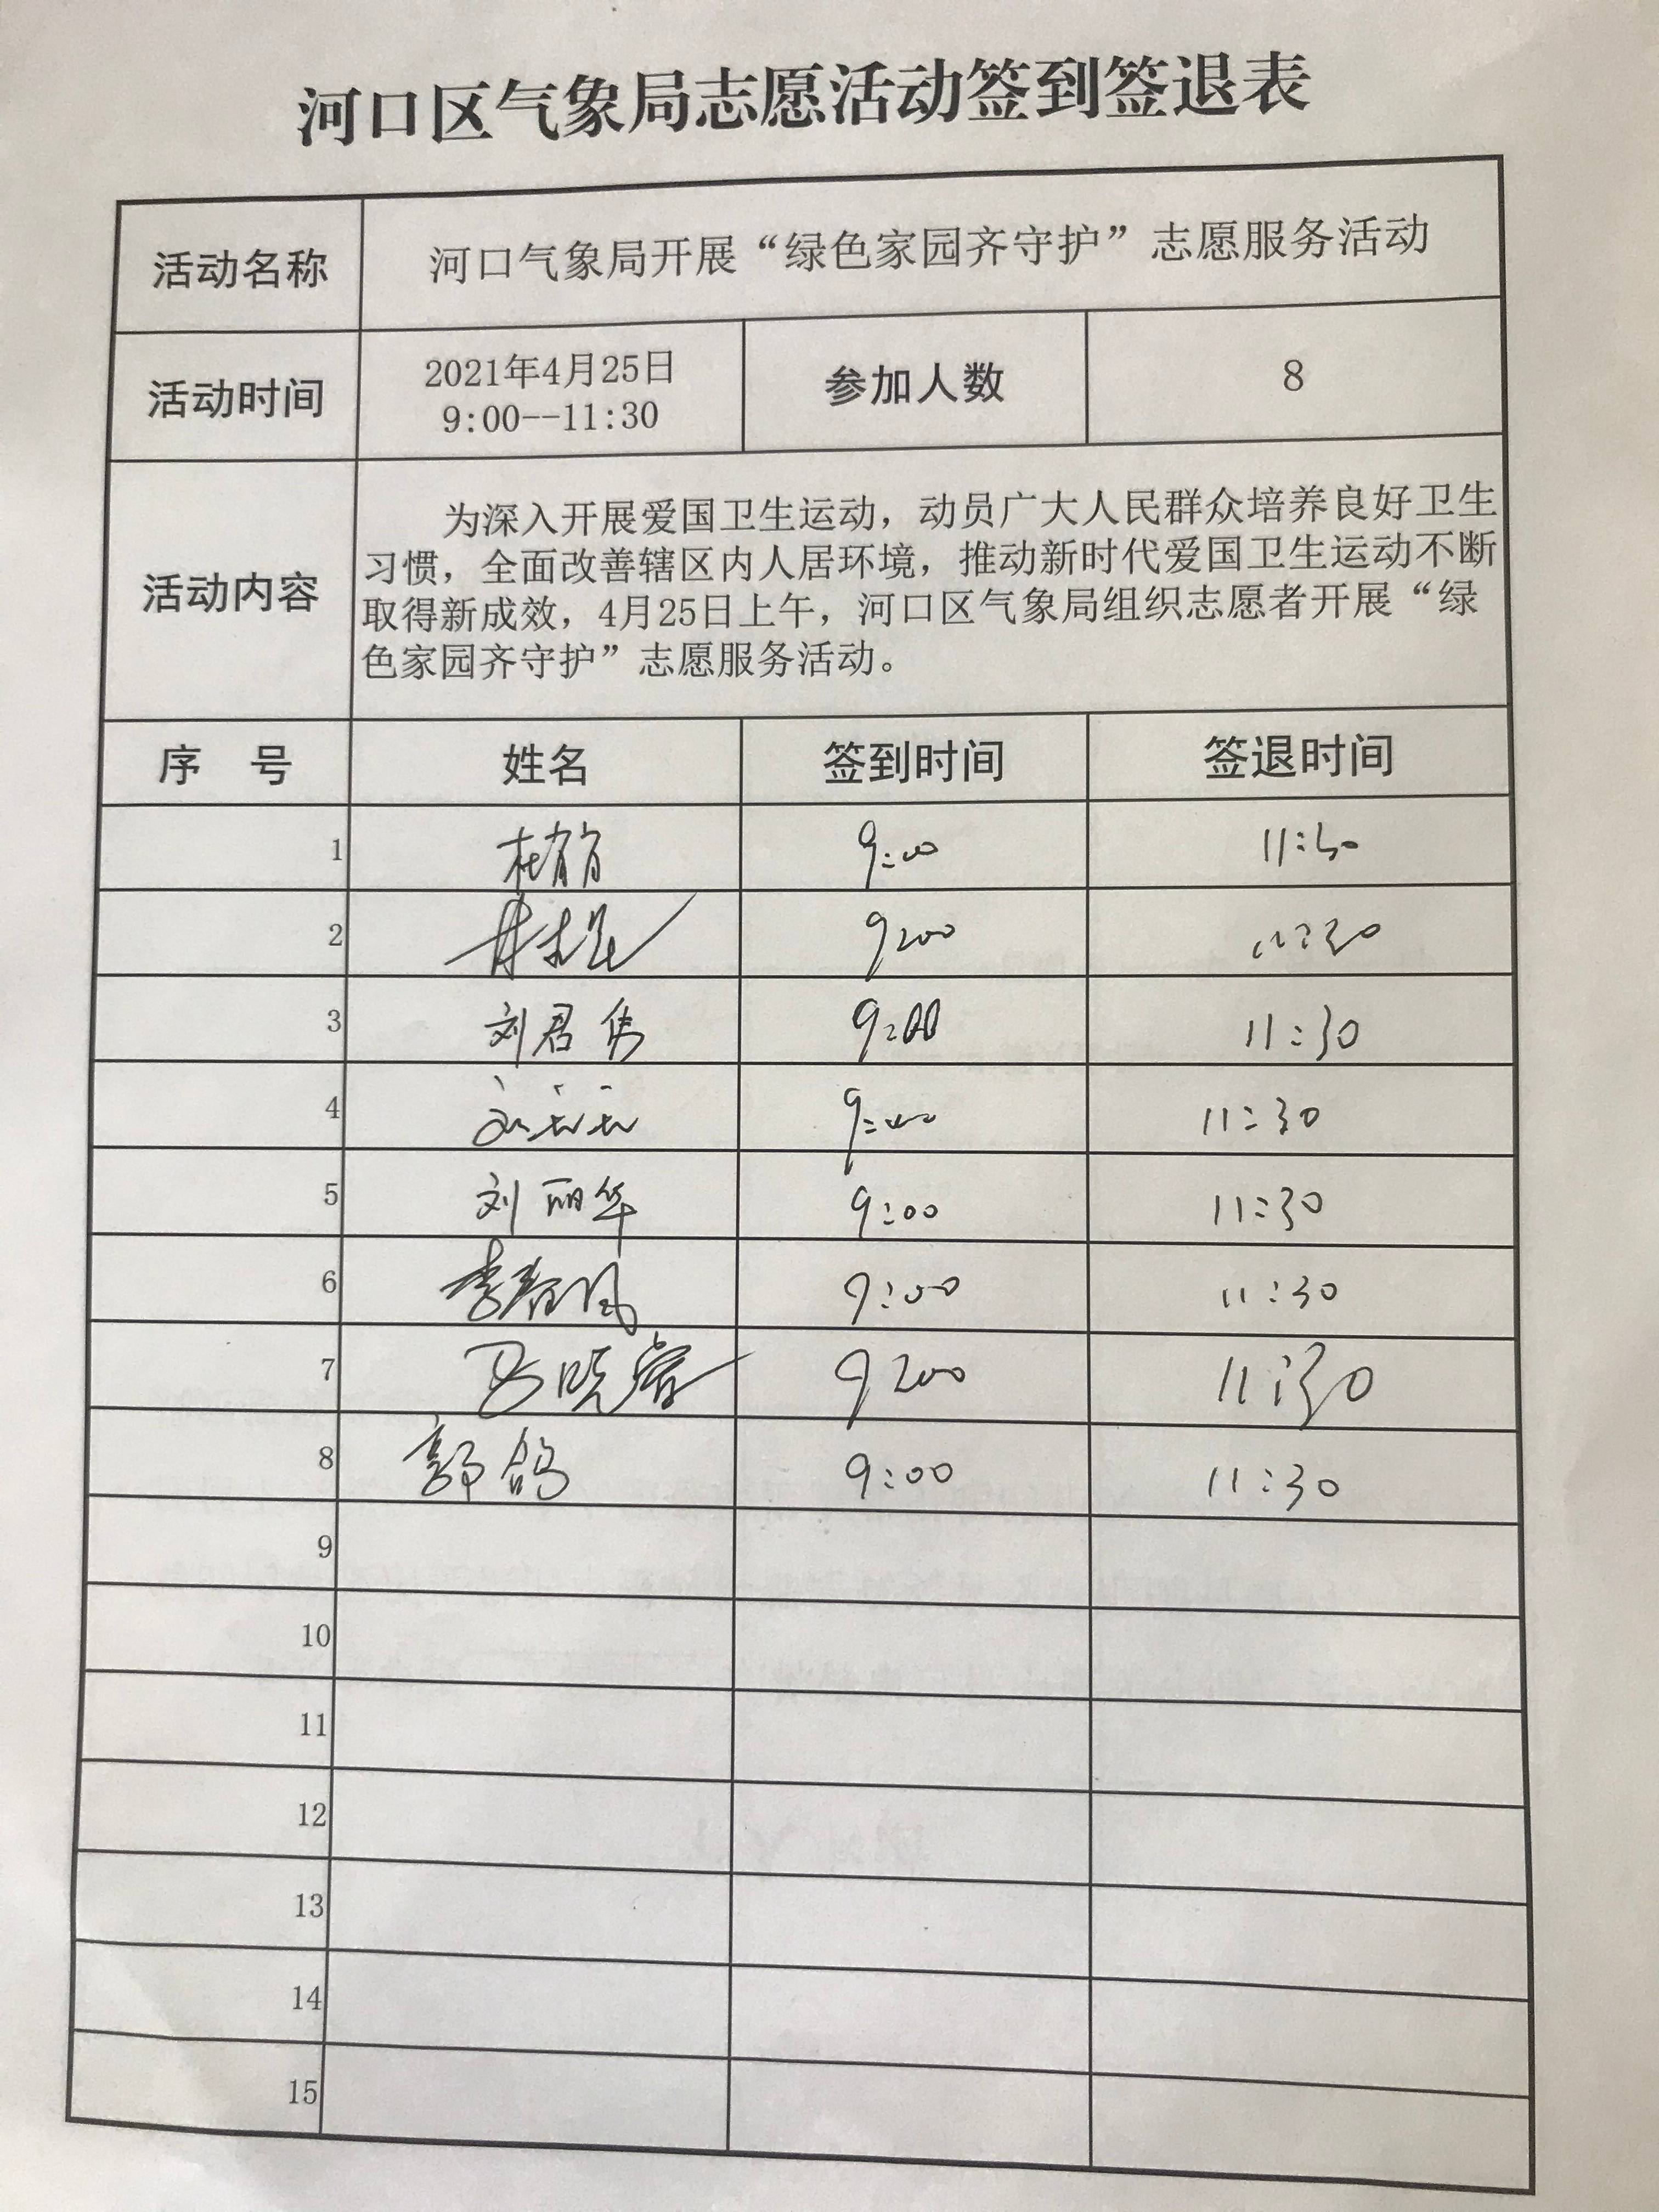 河口区气象局志愿活动签到签退表
活动名称 河口气象局开展“绿色家园齐守护”志愿服务活动
活动时间 2021年4月25日 9:00--11:30 参加人数 8
活动内容
为深入开展爱国卫生运动，动员广大人民群众培养良好卫生
习惯，全面改善辖区内人居环境，推动新时代爱国卫生运动不断
取得新成效，4月25日上午，河口区气象局组织志愿者开展“绿
色家园齐守护”志愿服务活动。
序 号 姓名 签到时间 签退时间
1 9:00 11:30
2 9:00 11:30
3 刘君隽 9:00 11:30
4 9:00 11:30
5 刘丽华 9:00 11:30
6 李春风 9:00 11:30
7 马晓睿 9:00 11:30
8 郭鸽 9:00 11:30
9
10
11
12
13
14
15